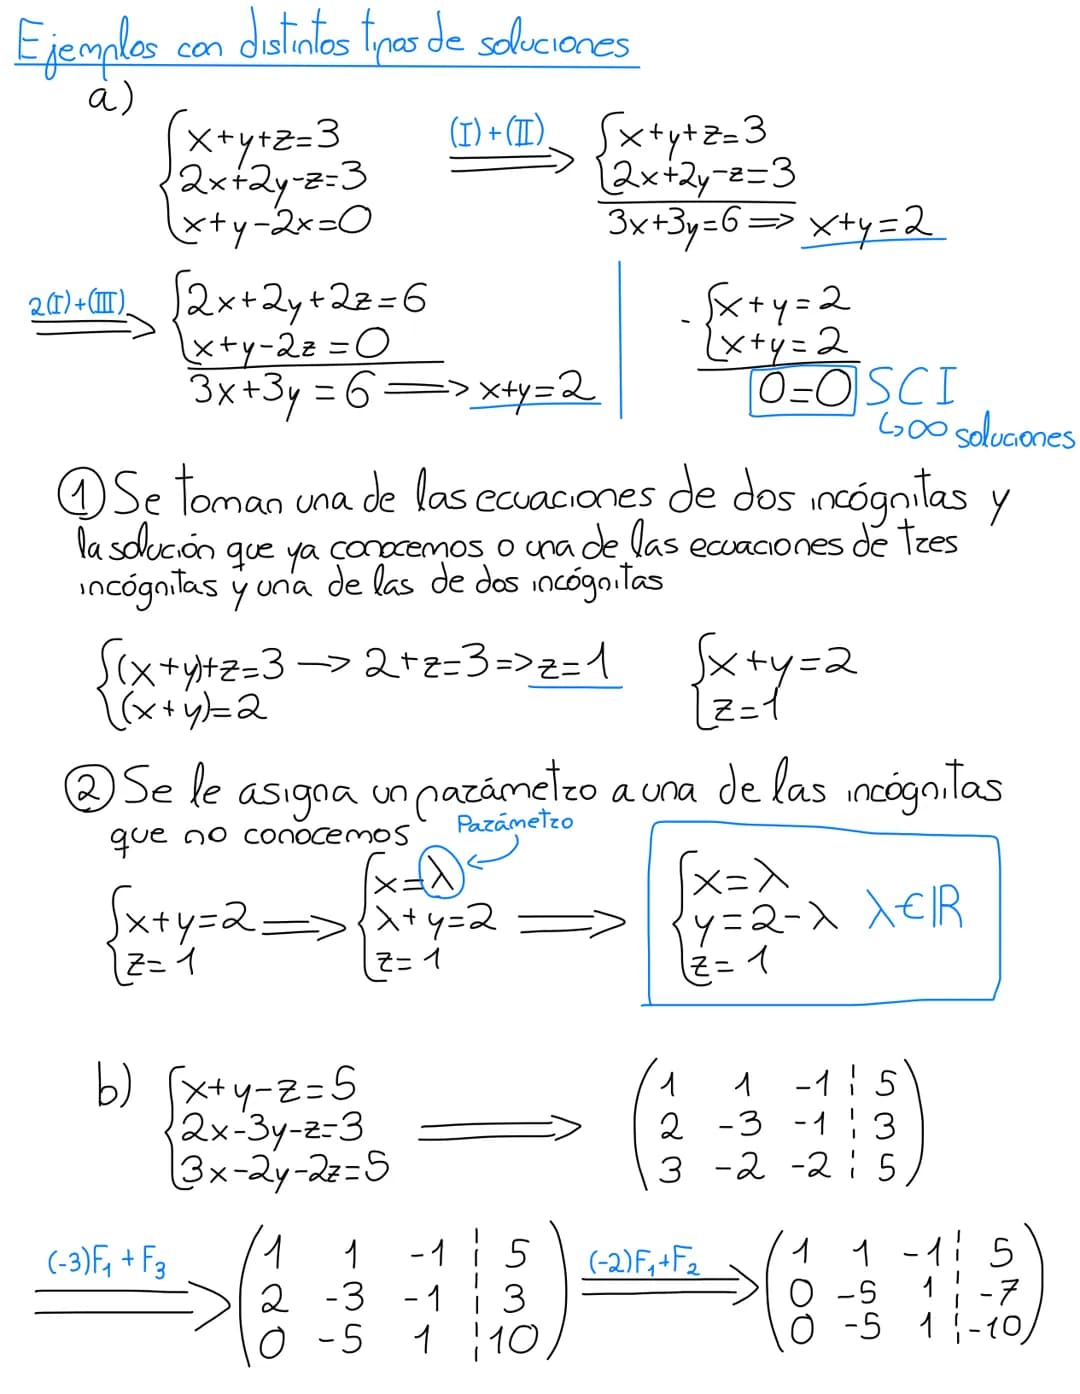 Ejemplos con distintos tipos de soluciones
a)
x+y+z=3
2x+2y-z=3
x+y-2x=0
(I)+(II)
x+y+z=3
2x+2y-z=3
3x+3y=6 => x+y=2
2(I)+(III)
2x+2y+2z=6
x+y-2z=0
3x+3y=6 => x+y=2
- x+y=2
x+y=2
0=0 SCI
↳∞ soluciones
① Se toman una de las ecuaciones de dos incógnitas y
la solución que ya conocemos o una de las ecuaciones de tres
incógnitas y una de las de dos incógnitas
(x+y)+z=3 → 2+z=3 => z=1
(x+y)=2
x+y=2
z=1
② Se le asigna un parámetro a una de las incógnitas
que no conocemos
Parámetro
x+y=2
z=1
=>
x=λ
λ+y=2
z=1
=>
x=λ
y=2-λ λ∈ℝ
z=1
b)
x+y-z=5
2x-3y-z=3
3x-2y-2z=5
=>
1 1 -1 ¦ 5
2 -3 -1 ¦ 3
3 -2 -2 ¦ 5
(-3)F₁+F₃
1 1 -1 ¦ 5
2 -3 -1 ¦ 3
0 -5 1 ¦ 10
(-2)F₁+F₂
1 1 -1 ¦ 5
0 -5 1 ¦ -7
0 -5 1 ¦ -10